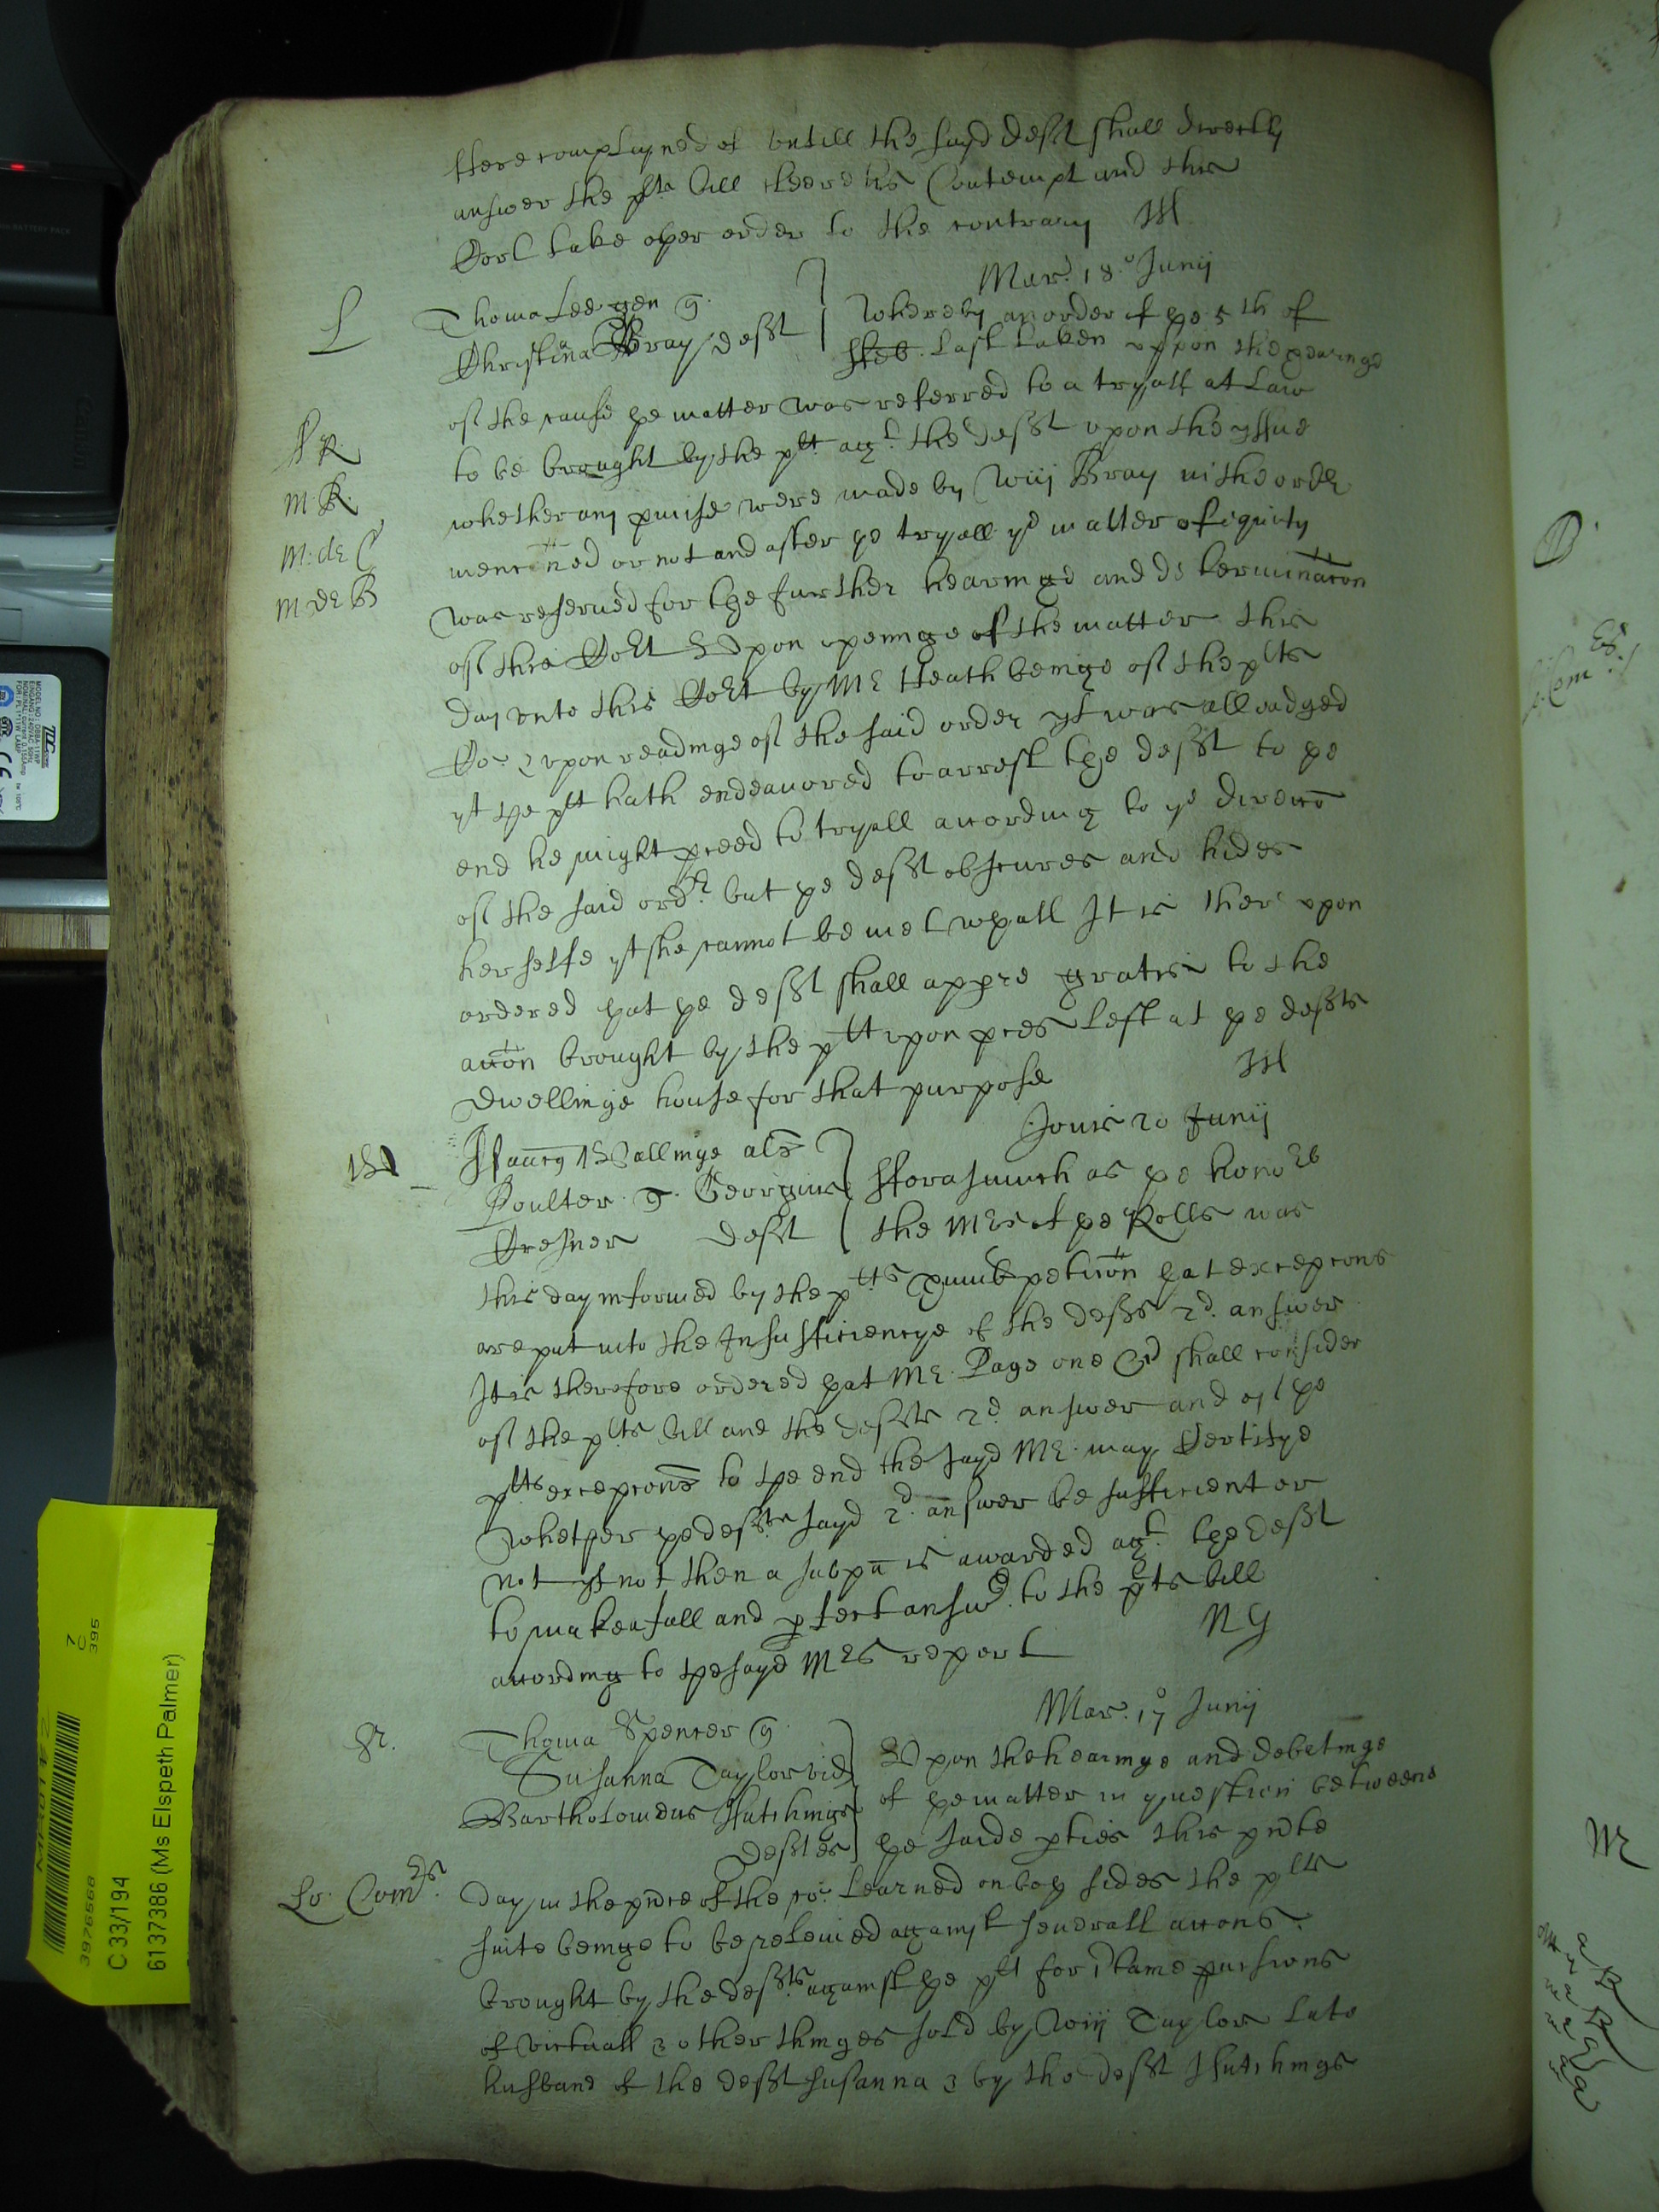 there complayned of untill the sayd deft shall directly
answer the plts bill cleere his Contempt and this
Cort take other order to the contrary
Mar. 18º Junij
L
Thoma Lee gen q.
Christina Bray deft
Whereby an order of ye 5th of
ffeb. last taken uppon the hearinge
of the cause ye matter was referred to a tryall at Law
to be brought by the plt agt. the deft upon the yssue
whether any pmise were made by Willi Bray in the order
mencōned or not and after ye tryall ye matter of equity
was reserved for the further hearinge and determinacon
of this Cort Upon openinge of the matter this
day unto this Cort by Mr Heath beinge of the plts
Co. & upon readinge of the said order yt was alleadged
yt ye plt hath endeavored to arrest the deft to ye
end he might pceed to tryall according to ye direccō
of the said ordr. but ye deft obscures and hides
her selfe yt she cannot be met wthall It is ther upon
ordered that ye deft shall appre gratis to the
accōn brought by the plt upon pces left at ye defts
dwellinge house for that purpose
M R.
M: de C
M de B
Jovis 20 Junij
Wallinge als
Poulter q. Georgius
deft
fforasmuch as ye honoble
the Mr of ye Rolls was
this day informed by the plts peticōn that excepcons
are put into the Insufficiencye of the defts 2d. answer
It is therefore ordered that Mr. Page one &c shall consider
of the plts bill and the defts 2d. answer and of ye
plts excepcons to the end the sayd Mr. may Certifye
whether ye defts sayd 2d. answer be sufficient or
not yf not then a subpa is awarded agt. the deft
to make a full and pfect answr. to the plts bill
according to the sayd Mrs report
N G
Mar. 17º Junij
Thoma Spencer q.
Susanna Taylor vid
Bartholomeus Hutchings
deftes
Upon the hearinge and debetinge
of ye matter in question betweene
ye saide pties this pnte
Lo. Comrs.
day in the pnce of the co. learned on both sides the plts
suite beinge to be releived against severall accons
brought by the defts against ye plt for
of victuall & other thinges sold by Willi Taylor late
husband of the deft Susanna & by the deft Hutchings
MODEL NO: DSBA-11WP
C 33/194
6137386 (Ms Elspeth Palmer)
3976568
7
C
395